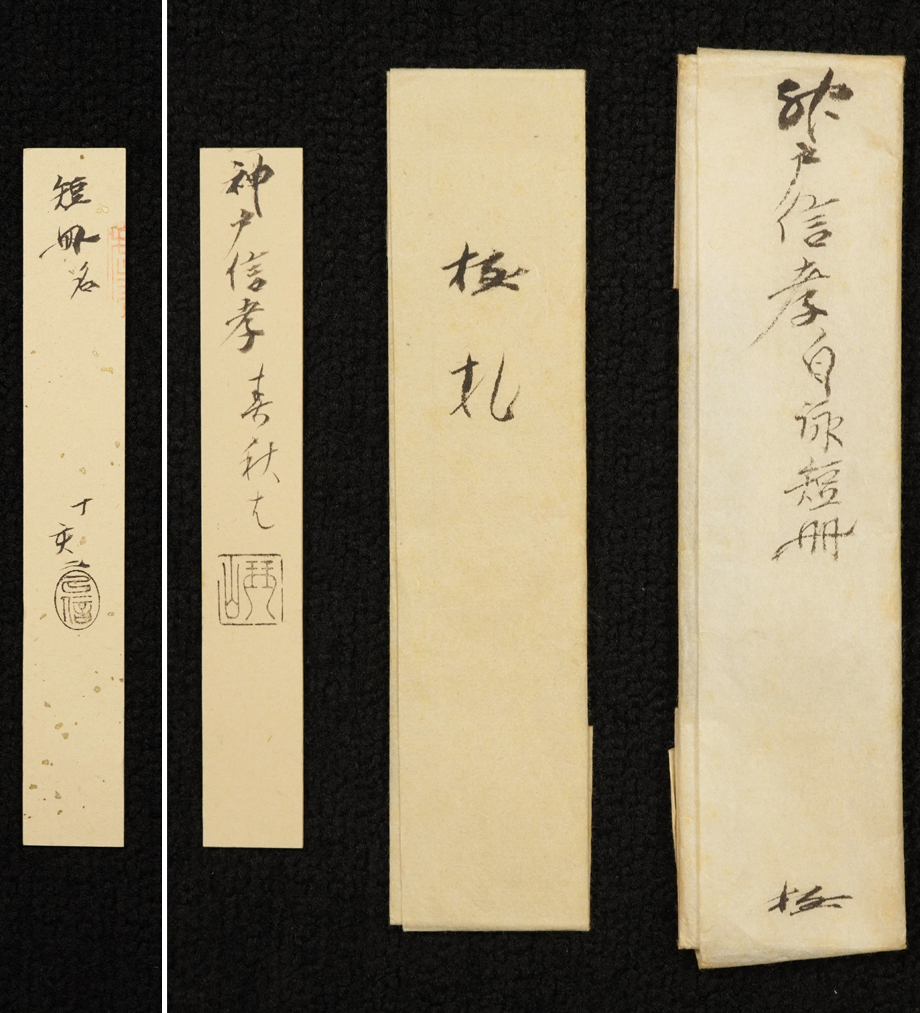 神戸信孝自詠短冊
極
極札
神戸信孝 春秋は
琴山
短冊名